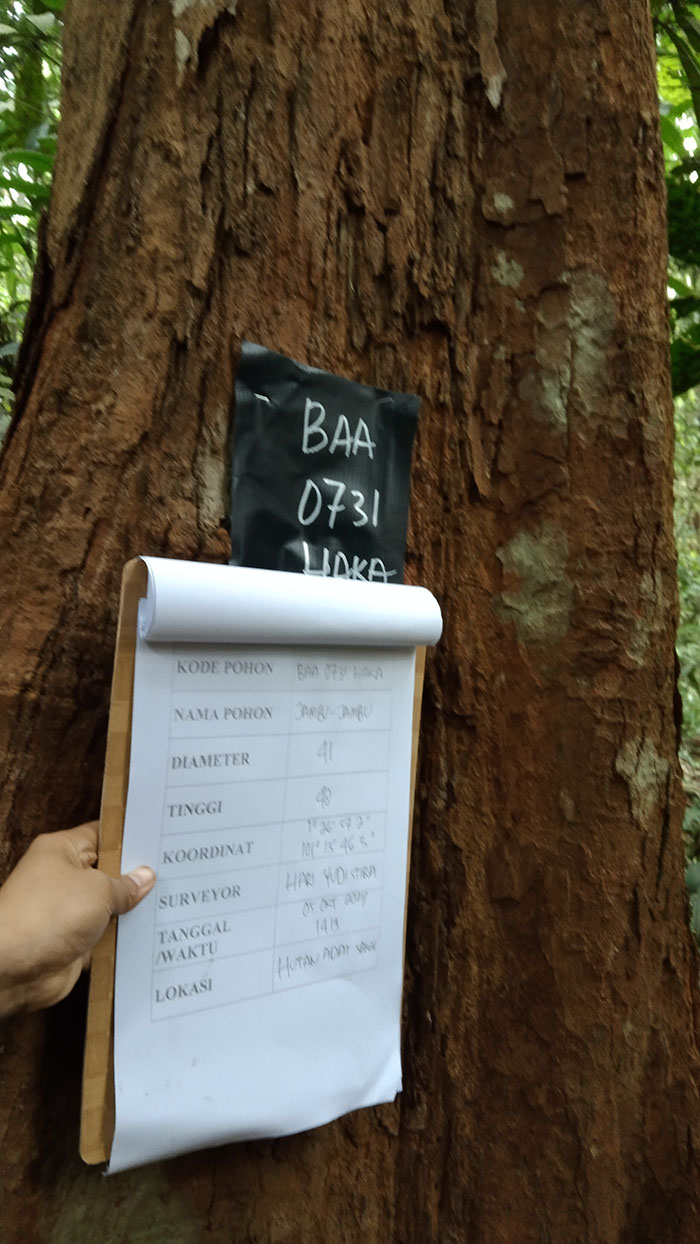 BAA
0731
HAKA
KODE POHON BAA 0731 HAKA
NAMA POHON JAMBU-JAMBU
DIAMETER 41
TINGGI 48
KOORDINAT 1° 26' 57.2"
101° 15' 46.3"
SURVEYOR HARI YUDISTIRA
TANGGAL 05 OKT 2024
/WAKTU 1419
LOKASI HUTAN ADAT